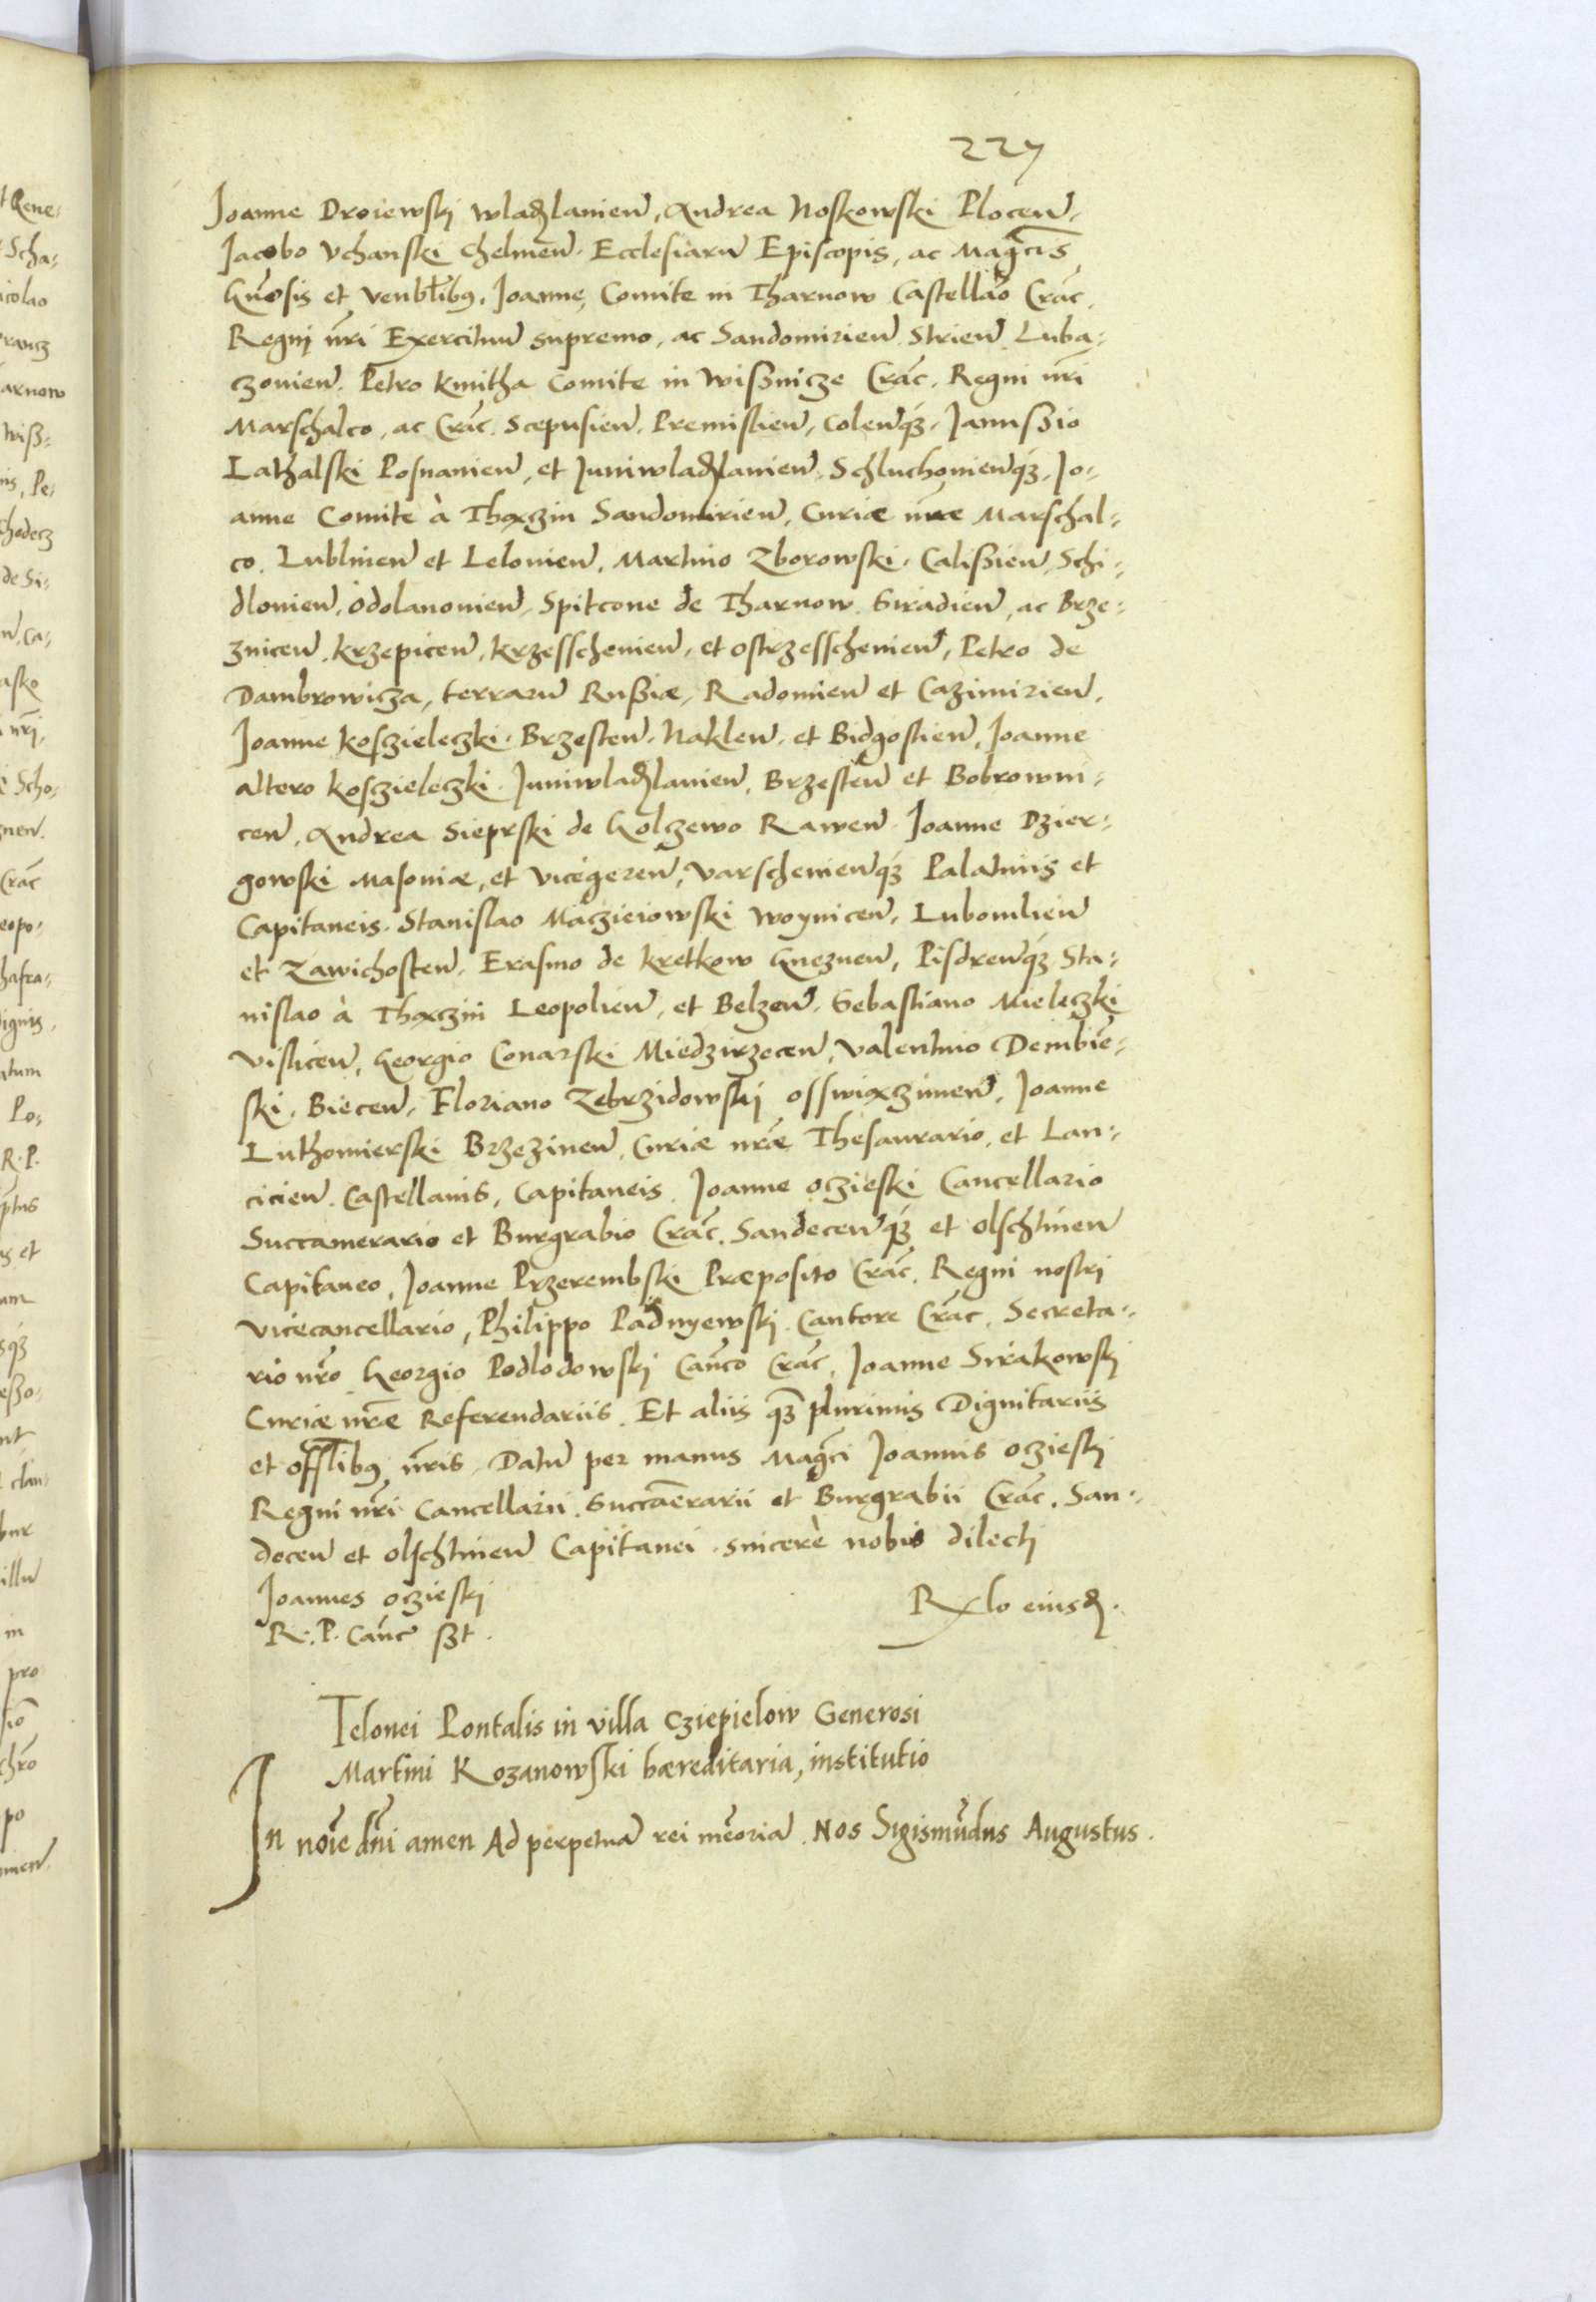 227
Joanne Droiewskj wladzlauien, Andrea Noskowski Plocen,
Jacobo Vchanski Chelmen. Ecclesiaru Episcopis, ac Magcis
Gnosis et venblibus, Joanne, Comite in Tharnow Castellāo Crac.
Regnj nri Exercituu supremo, ac Sandomirien Strien Luba-
czouien. Petro kmitha Comite in Wisnicze Crac. Regni nri
Marschalco, ac Crac. Scepusien. Premislien, Colenqz. Janussio
Lathalski Posnanien, et Juniwladzlauien. Schluchouienqz, Jo-
anne Comite à Thaczin Sandomirien, Curiæ nræ Marschal-
co. Lublinen et Lelouien. Martino Zborowski. Calissien, Schi-
dlouien, Odolanouien, Spitcone de Tharnow Siradien, ac Brze-
znicen, krzepicen, krzesschouien, et ostrzesschouien, Petro de
Dambrowicza, terraru Russiæ, Radomien et Cazimirien,
Joanne kosczieleczki. Brzesten. Naklen. et Bidgostien, Joanne
altero kosczieleczki. Juniwladzlauien, Brzesten et Bobrowni-
cen, Andrea Sieprski de Golczewo Rawen Joanne Dzier-
gowski Masouiæ, et vicegeren, varschouienqz Palatinis et
Capitaneis. Stanislao Maczieiowski woynicen, Lubomlien
et Zawichosten. Erasmo de kretkow Gneznen, Pisdrenqz Sta-
nislao à Thaczin Leopolien, et Belzen. Sebastiano Mieleczki
vislicen, Georgio Conarski Miedzirzecen, valentino Dembie-
ski. Biecen. Floriano Zebrzidowskj osswiaczimen, Joanne
Luthomierski Brzezinen, Curiæ nræ Thesaurario, et Lan-
cicien Castellanis, Capitaneis. Joanne oczieski Cancellario
Succamerario et Burgrabio Crac. Sandecenqz et olschtinen
Capitaneo, Joanne Przerembski Præposito Crac. Regni nostri
vicecancellario, Philippo Padnyewskj Cantore Crac, Secreta-
rio nro Georgio Podlodowskj Canco Crac, Joanne Sirakowskj
Curiæ nræ Referendariis. Et aliis qz plurimis Dignitariis
et offlibus nris, Datu per manus Magci Joannis oczieskj
Regni nri Cancellarii. Succaerarii et Burgrabii Crac. San-
decen et olschtinen Capitanei. sincerè nobis dilecti
Joannes oczieskj
R. P. Canc sst.
Rlo eiusd.
Telonei Pontalis in villa Cziepielow Generosi
Martini Kozanowski hæreditaria, institutio
In noie dni amen Ad perpetua rei meoria. Nos Sigismudus Augustus.